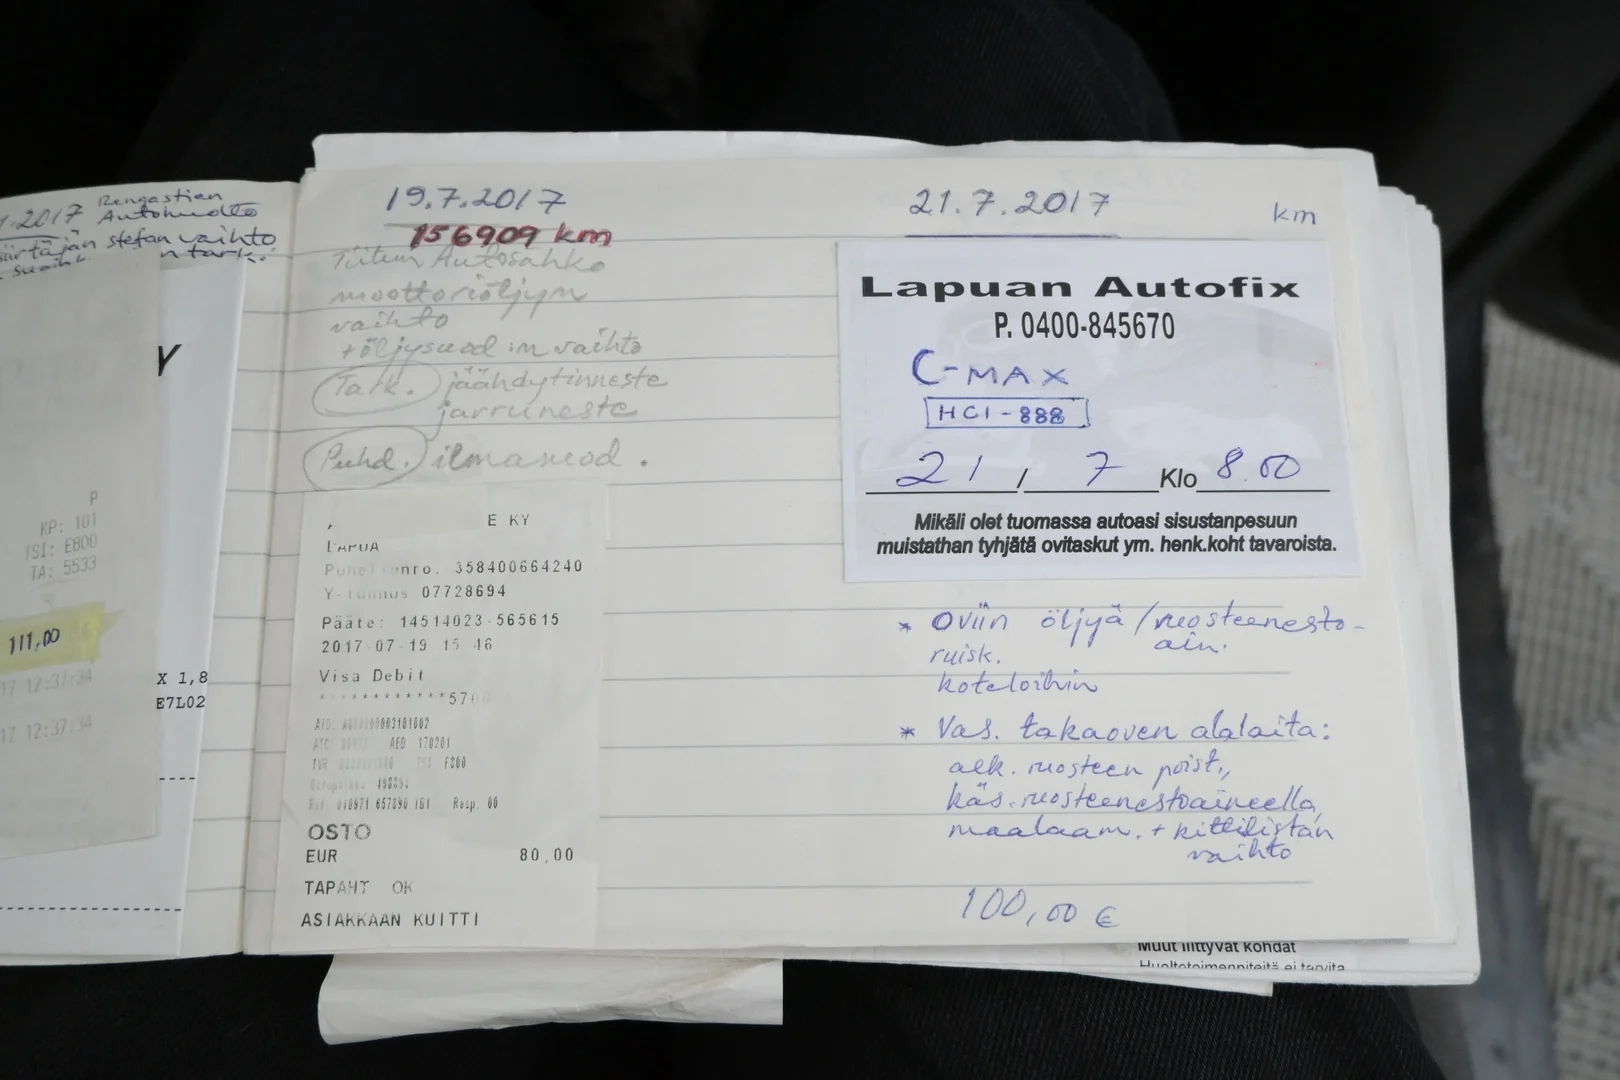 1.2017 Rengastien
Autohuolto
siirtäjän stefan vaihto
n tark.
Y
P
KP: 101
TSI: E800
TA: 5533
111,00
17 12:37:34
X 1,8
E7L02
17 12:37:34
19.7.2017
156909 km
Autosähkö
moottoriöljyn
vaihto
+öljysuod:in vaihto
Tark. jäähdytinneste
jarruneste
Puhd. ilmansuod.
E KY
LAPUA
Puhelinnro. 358400664240
Y-Tunnus 07728694
Pääte: 14514023-565615
2017-07-19 15 46
Visa Debit
AED 170201
Resp. 00
OSTO
EUR 80,00
TAPAHT OK
ASIAKKAAN KUITTI
21.7.2017 km
Lapuan Autofix
P. 0400-845670
C-MAX
HCI-888
21 / 7 Klo 8.00
Mikäli olet tuomassa autoasi sisustanpesuun
muistathan tyhjätä ovitaskut ym. henk.koht tavaroista.
* Oviin öljyä/ruosteenesto-
ain.
ruisk.
koteloihin
* Vas. takaoven alalaita:
alk. ruosteen poist.,
käs. ruosteenestoaineella,
maalaam. + kittilistan
vaihto
100,00 €
Muut liittyvät kohdat
Huoltotoimenpiteitä ei tarvita